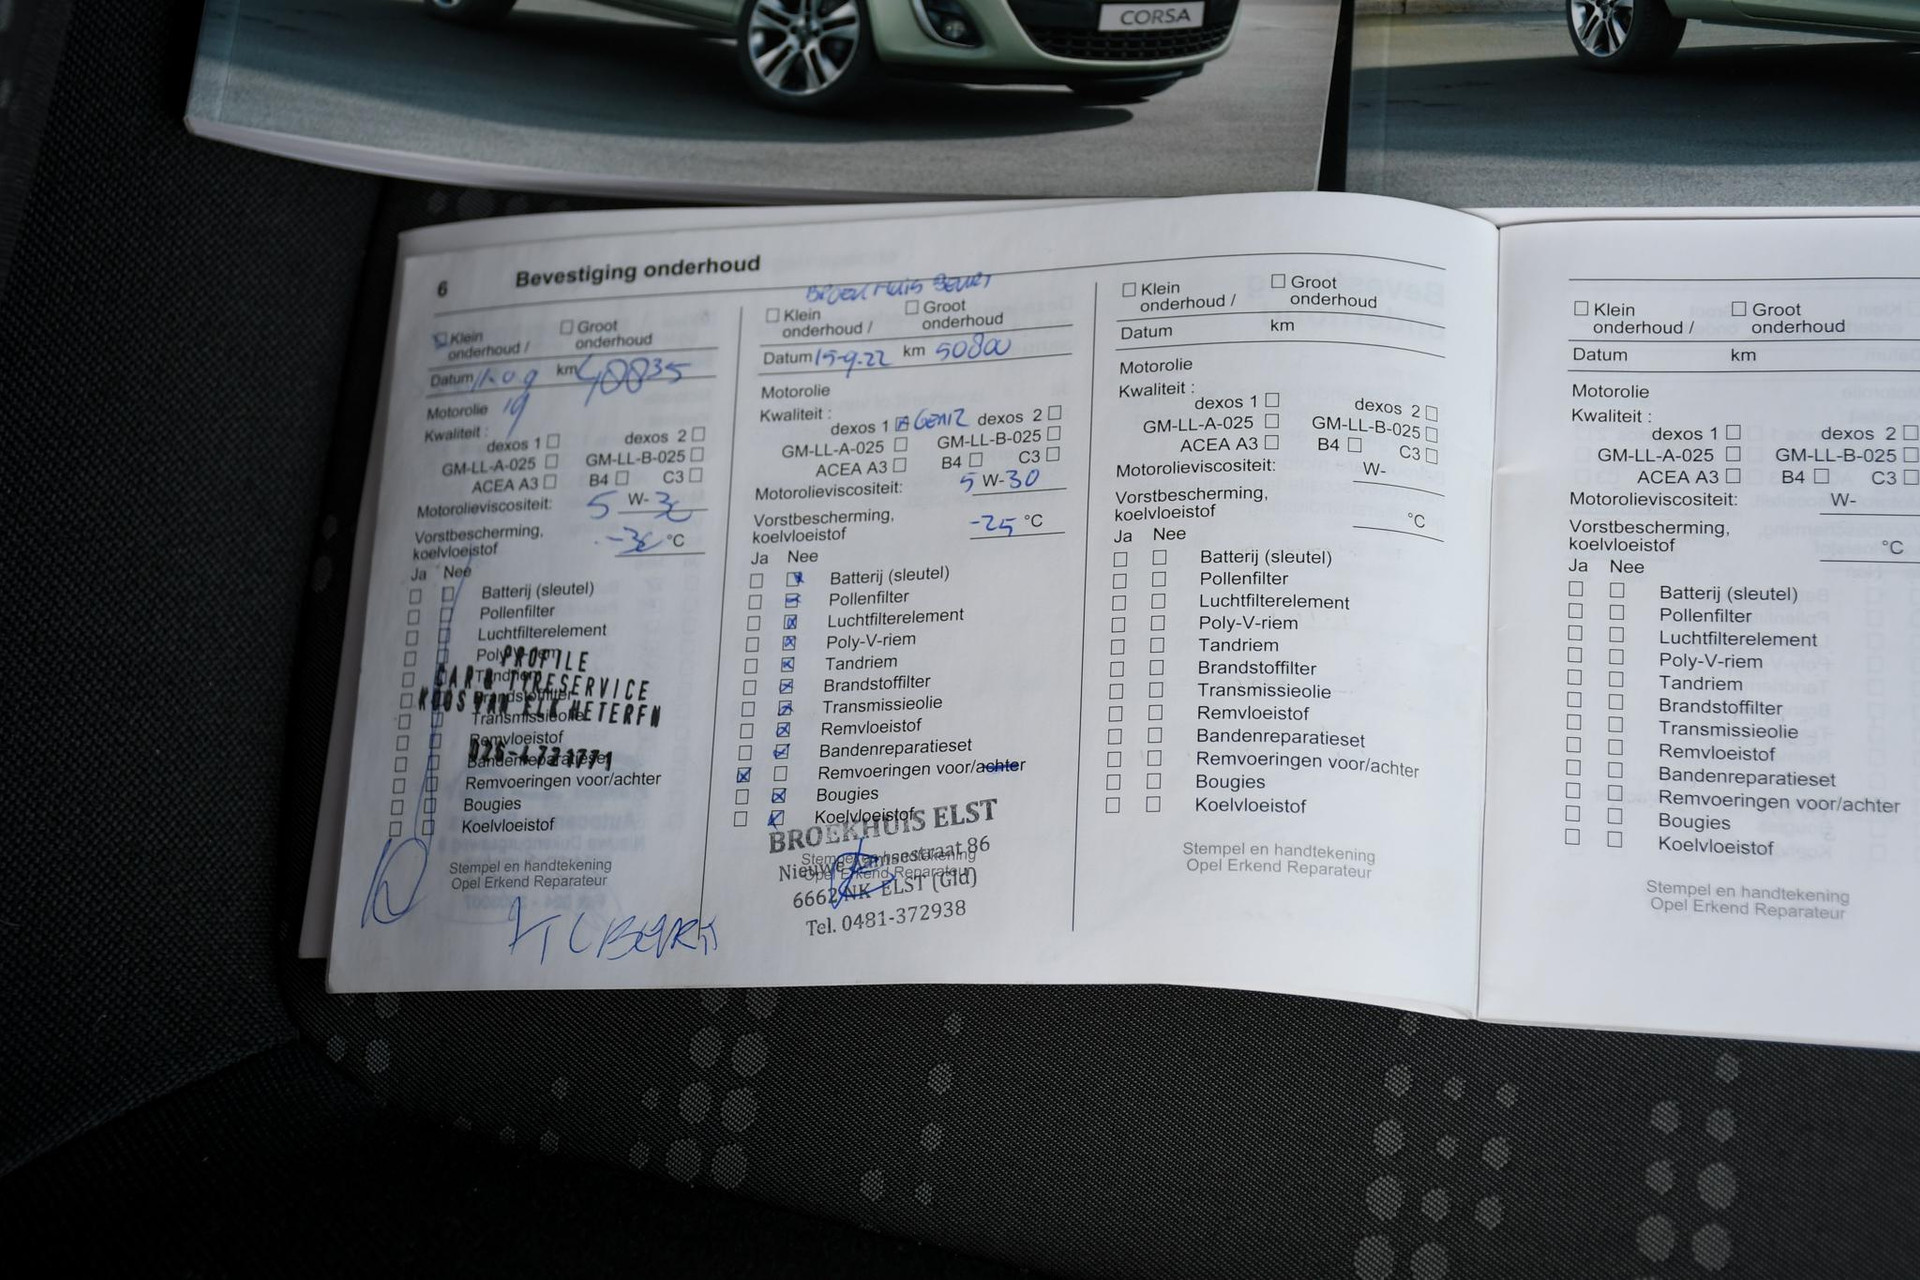 CORSA
6 Bevestiging onderhoud
Klein onderhoud /
Groot onderhoud
Datum km 40835
19
Motorolie
Kwaliteit :
dexos 1 dexos 2
GM-LL-A-025 GM-LL-B-025
ACEA A3 B4 C3
Motorolieviscositeit: 5 W-30
Vorstbescherming,
koelvloeistof -30 °C
Ja Nee
Batterij (sleutel)
Pollenfilter
Luchtfilterelement
Poly-V-riem
Tandriem
Brandstoffilter
Transmissieolie
Remvloeistof
Bandenreparatieset
Remvoeringen voor/achter
Bougies
Koelvloeistof
PROFILE
CAR & TYRESERVICE
KOOS VAN ELK HETEREN
Stempel en handtekening
Opel Erkend Reparateur
BROEKHUIS BEURT
Klein onderhoud /
Groot onderhoud
Datum 15-9-22 km 50800
Motorolie
Kwaliteit :
dexos 1 GEN2 dexos 2
GM-LL-A-025 GM-LL-B-025
ACEA A3 B4 C3
Motorolieviscositeit: 5 W-30
Vorstbescherming,
koelvloeistof -25 °C
Ja Nee
Batterij (sleutel)
Pollenfilter
Luchtfilterelement
Poly-V-riem
Tandriem
Brandstoffilter
Transmissieolie
Remvloeistof
Bandenreparatieset
Remvoeringen voor/achter
Bougies
Koelvloeistof
BROEKHUIS ELST
Stempel en handtekening
Opel Erkend Reparateur
Nieuwe Aamsestraat 86
6662 NK ELST (Gld)
Tel. 0481-372938
Klein onderhoud /
Groot onderhoud
Datum km
Motorolie
Kwaliteit :
dexos 1 dexos 2
GM-LL-A-025 GM-LL-B-025
ACEA A3 B4 C3
Motorolieviscositeit: W-
Vorstbescherming,
koelvloeistof °C
Ja Nee
Batterij (sleutel)
Pollenfilter
Luchtfilterelement
Poly-V-riem
Tandriem
Brandstoffilter
Transmissieolie
Remvloeistof
Bandenreparatieset
Remvoeringen voor/achter
Bougies
Koelvloeistof
Stempel en handtekening
Opel Erkend Reparateur
Klein onderhoud /
Groot onderhoud
Datum km
Motorolie
Kwaliteit :
dexos 1 dexos 2
GM-LL-A-025 GM-LL-B-025
ACEA A3 B4 C3
Motorolieviscositeit: W-
Vorstbescherming,
koelvloeistof °C
Ja Nee
Batterij (sleutel)
Pollenfilter
Luchtfilterelement
Poly-V-riem
Tandriem
Brandstoffilter
Transmissieolie
Remvloeistof
Bandenreparatieset
Remvoeringen voor/achter
Bougies
Koelvloeistof
Stempel en handtekening
Opel Erkend Reparateur